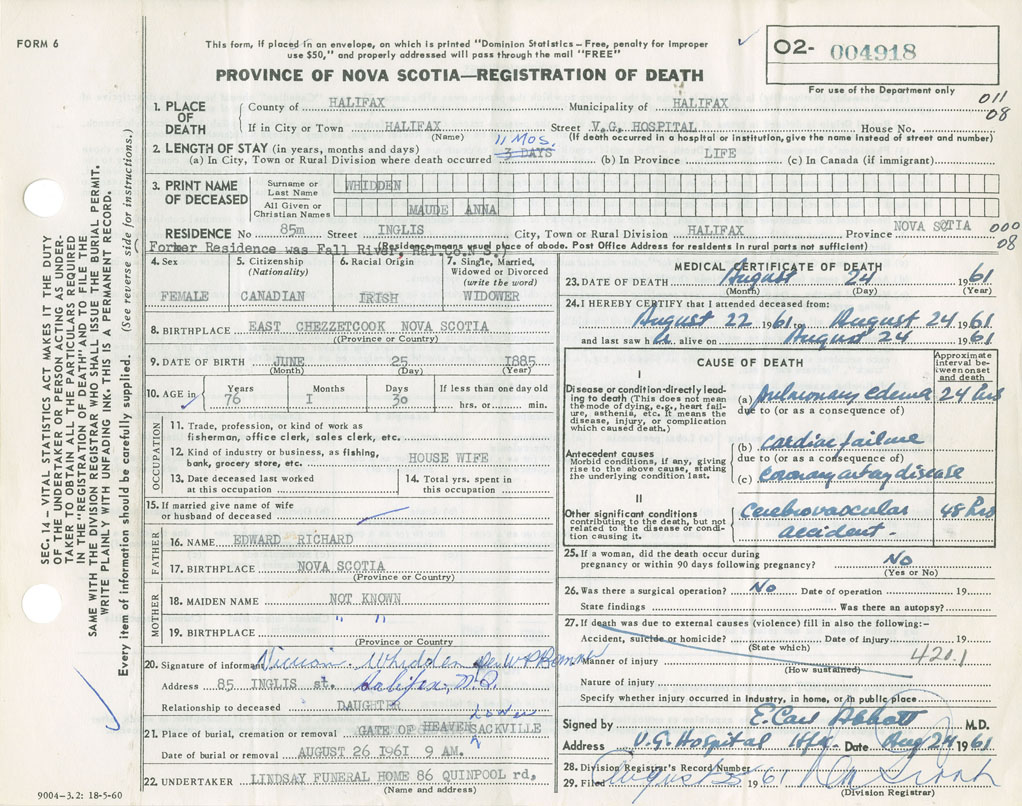 FORM 6
This form, if placed in an envelope, on which is printed "Dominion Statistics – Free, penalty for improper
use $50," and properly addressed will pass through the mail "FREE"
PROVINCE OF NOVA SCOTIA—REGISTRATION OF DEATH
02- 004918
For use of the Department only
011
08
1. PLACE OF DEATH
County of HALIFAX Municipality of HALIFAX
If in City or Town HALIFAX Street V.G. HOSPITAL House No.
(Name) (If death occurred in a hospital or institution, give the name instead of street and number)
2. LENGTH OF STAY (in years, months and days) 11 Mos.
(a) In City, Town or Rural Division where death occurred 3 DAYS (b) In Province LIFE (c) In Canada (if immigrant)
3. PRINT NAME OF DECEASED
Surname or Last Name WHIDDEN
All Given or Christian Names MAUDE ANNA
RESIDENCE No 85m Street INGLIS City, Town or Rural Division HALIFAX Province NOVA SCOTIA 000
08
Former Residence was Fall River, Hal.Co.N S.
(Residence means usual place of abode. Post Office Address for residents in rural parts not sufficient)
4. Sex
FEMALE
5. Citizenship
(Nationality)
CANADIAN
6. Racial Origin
IRISH
7. Single, Married,
Widowed or Divorced
(write the word)
WIDOWER
8. BIRTHPLACE EAST CHEZZETCOOK NOVA SCOTIA
(Province or Country)
9. DATE OF BIRTH JUNE 25 1885
(Month) (Day) (Year)
10. AGE in
Years Months Days If less than one day old
76 I 30 hrs. or min.
OCCUPATION
11. Trade, profession, or kind of work as
fisherman, office clerk, sales clerk, etc.
12. Kind of industry or business, as fishing,
bank, grocery store, etc. HOUSE WIFE
13. Date deceased last worked
at this occupation
14. Total yrs. spent in
this occupation
15. If married give name of wife
or husband of deceased
FATHER
16. NAME EDWARD RICHARD
17. BIRTHPLACE NOVA SCOTIA
(Province or Country)
MOTHER
18. MAIDEN NAME NOT KNOWN
19. BIRTHPLACE " "
(Province or Country)
20. Signature of informant Whidden
Address 85 INGLIS st. Halifax, N.S.
Relationship to deceased DAUGHTER
Lower
21. Place of burial, cremation or removal GATE OF HEAVEN SACKVILLE
Date of burial or removal AUGUST 26 1961 9 AM.
22. UNDERTAKER LINDSAY FUNERAL HOME 86 QUINPOOL rd,
(Name and address)
MEDICAL CERTIFICATE OF DEATH
23. DATE OF DEATH August 24 1961
(Month) (Day) (Year)
24. I HEREBY CERTIFY that I attended deceased from:
August 22 1961 to August 24 1961
and last saw her alive on August 24 1961
CAUSE OF DEATH
Approximate
interval between onset
and death
I
Disease or condition directly leading to death (This does not mean
the mode of dying, e.g., heart failure, asthenia, etc. It means the
disease, injury, or complication
which caused death.)
(a) Pulmonary edema 24 hrs
due to (or as a consequence of)
Antecedent causes
Morbid conditions, if any, giving
rise to the above cause, stating
the underlying condition last.
(b) Cardiac failure
due to (or as a consequence of)
(c) Coronary artery disease
II
Other significant conditions
contributing to the death, but not
related to the disease or condition causing it.
Cerebrovascular 48 hrs
accident.
25. If a woman, did the death occur during
pregnancy or within 90 days following pregnancy? No
(Yes or No)
26. Was there a surgical operation? No Date of operation 19
State findings Was there an autopsy?
27. If death was due to external causes (violence) fill in also the following:-
Accident, suicide or homicide? Date of injury 19
(State which)
420.1
Manner of injury
(How sustained)
Nature of injury
Specify whether injury occurred in industry, in home, or in public place
Signed by E. Carl Abbott M.D.
Address V.G. Hospital Hfx. Date Aug 24 1961
28. Division Registrar's Record Number
29. Filed August 25 1961
(Division Registrar)
SEC. 14 – VITAL STATISTICS ACT MAKES IT THE DUTY
OF THE UNDERTAKER OR PERSON ACTING AS UNDERTAKER TO OBTAIN ALL THE PARTICULARS REQUIRED
IN THE "REGISTRATION OF DEATH" AND TO FILE THE
SAME WITH THE DIVISION REGISTRAR WHO SHALL ISSUE THE BURIAL PERMIT.
WRITE PLAINLY WITH UNFADING INK. THIS IS A PERMANENT RECORD.
Every item of information should be carefully supplied. (See reverse side for instructions.)
9004–3.2: 18-5-60